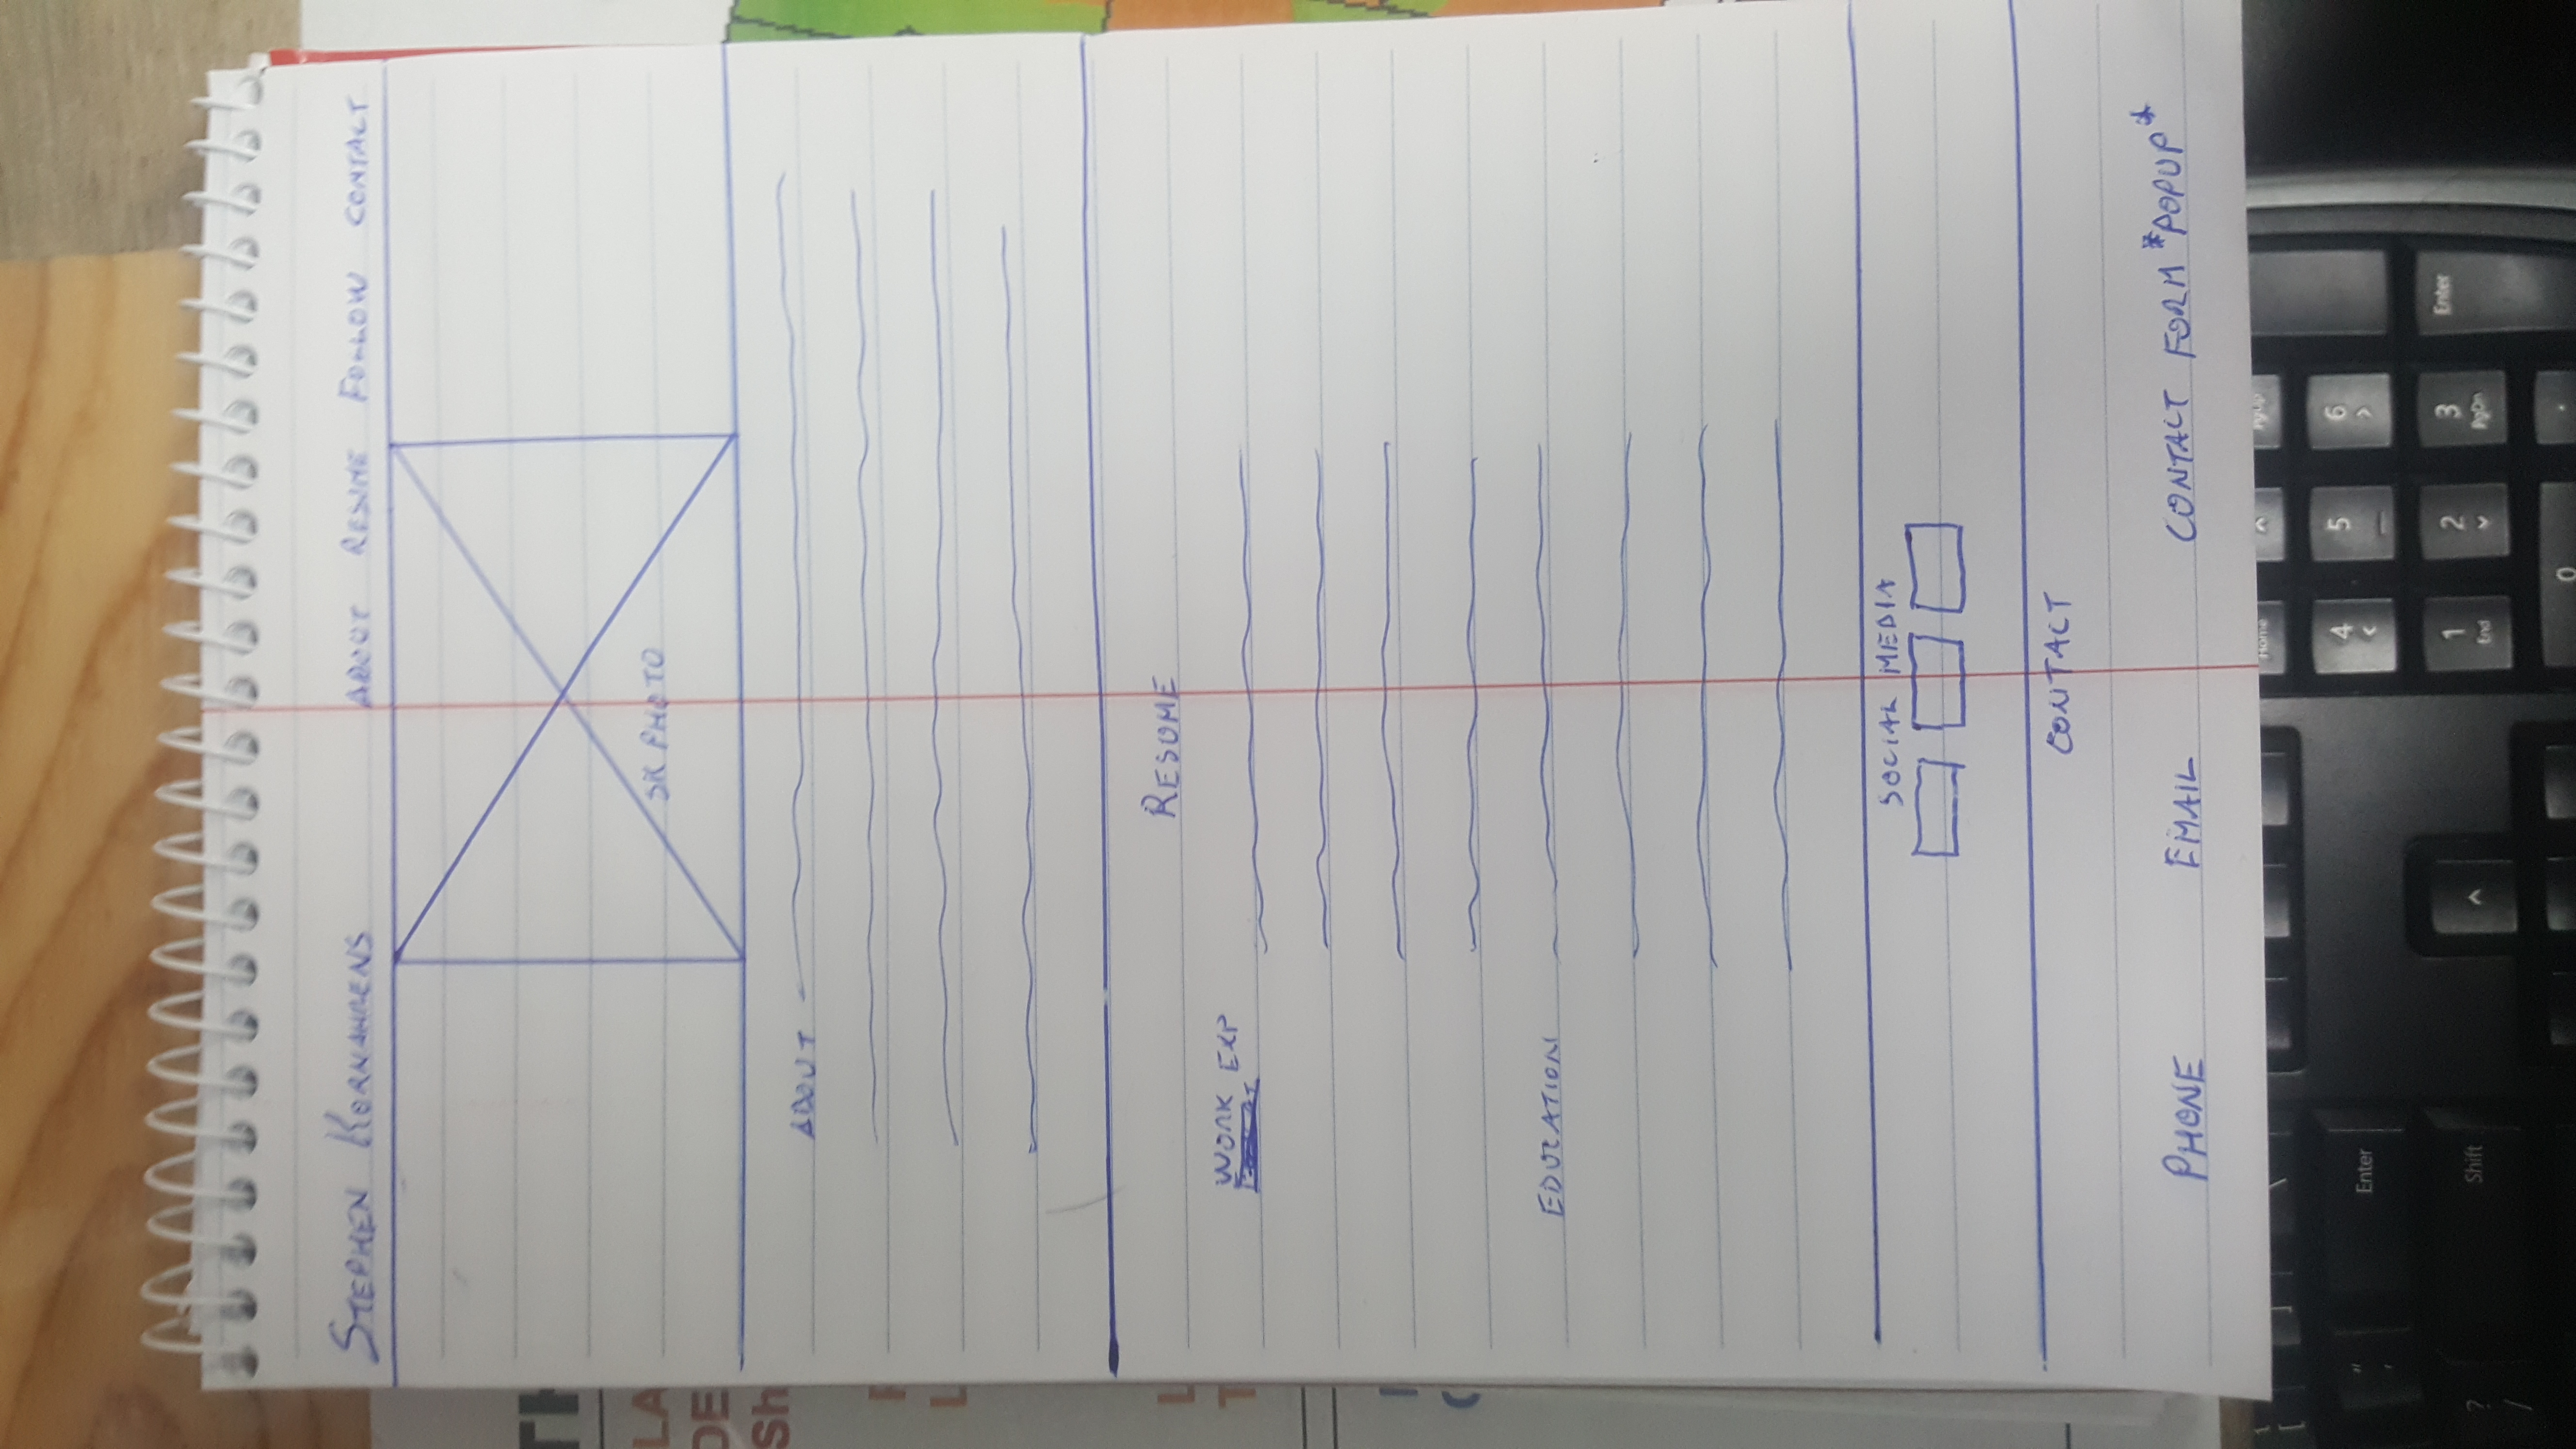 STEPHEN KORNAHRENS ABOUT RESUME FOLLOW CONTACT
SK PHOTO
ABOUT
RESUME
WORK EXP
EDUCATION
SOCIAL MEDIA
CONTACT
PHONE EMAIL CONTACT FORM *POPUP*
TH
LA
DE
Sh
Home PgUp
Enter 4 5 6
Shift 1 2 3 Enter
End PgDn
? /
0 .